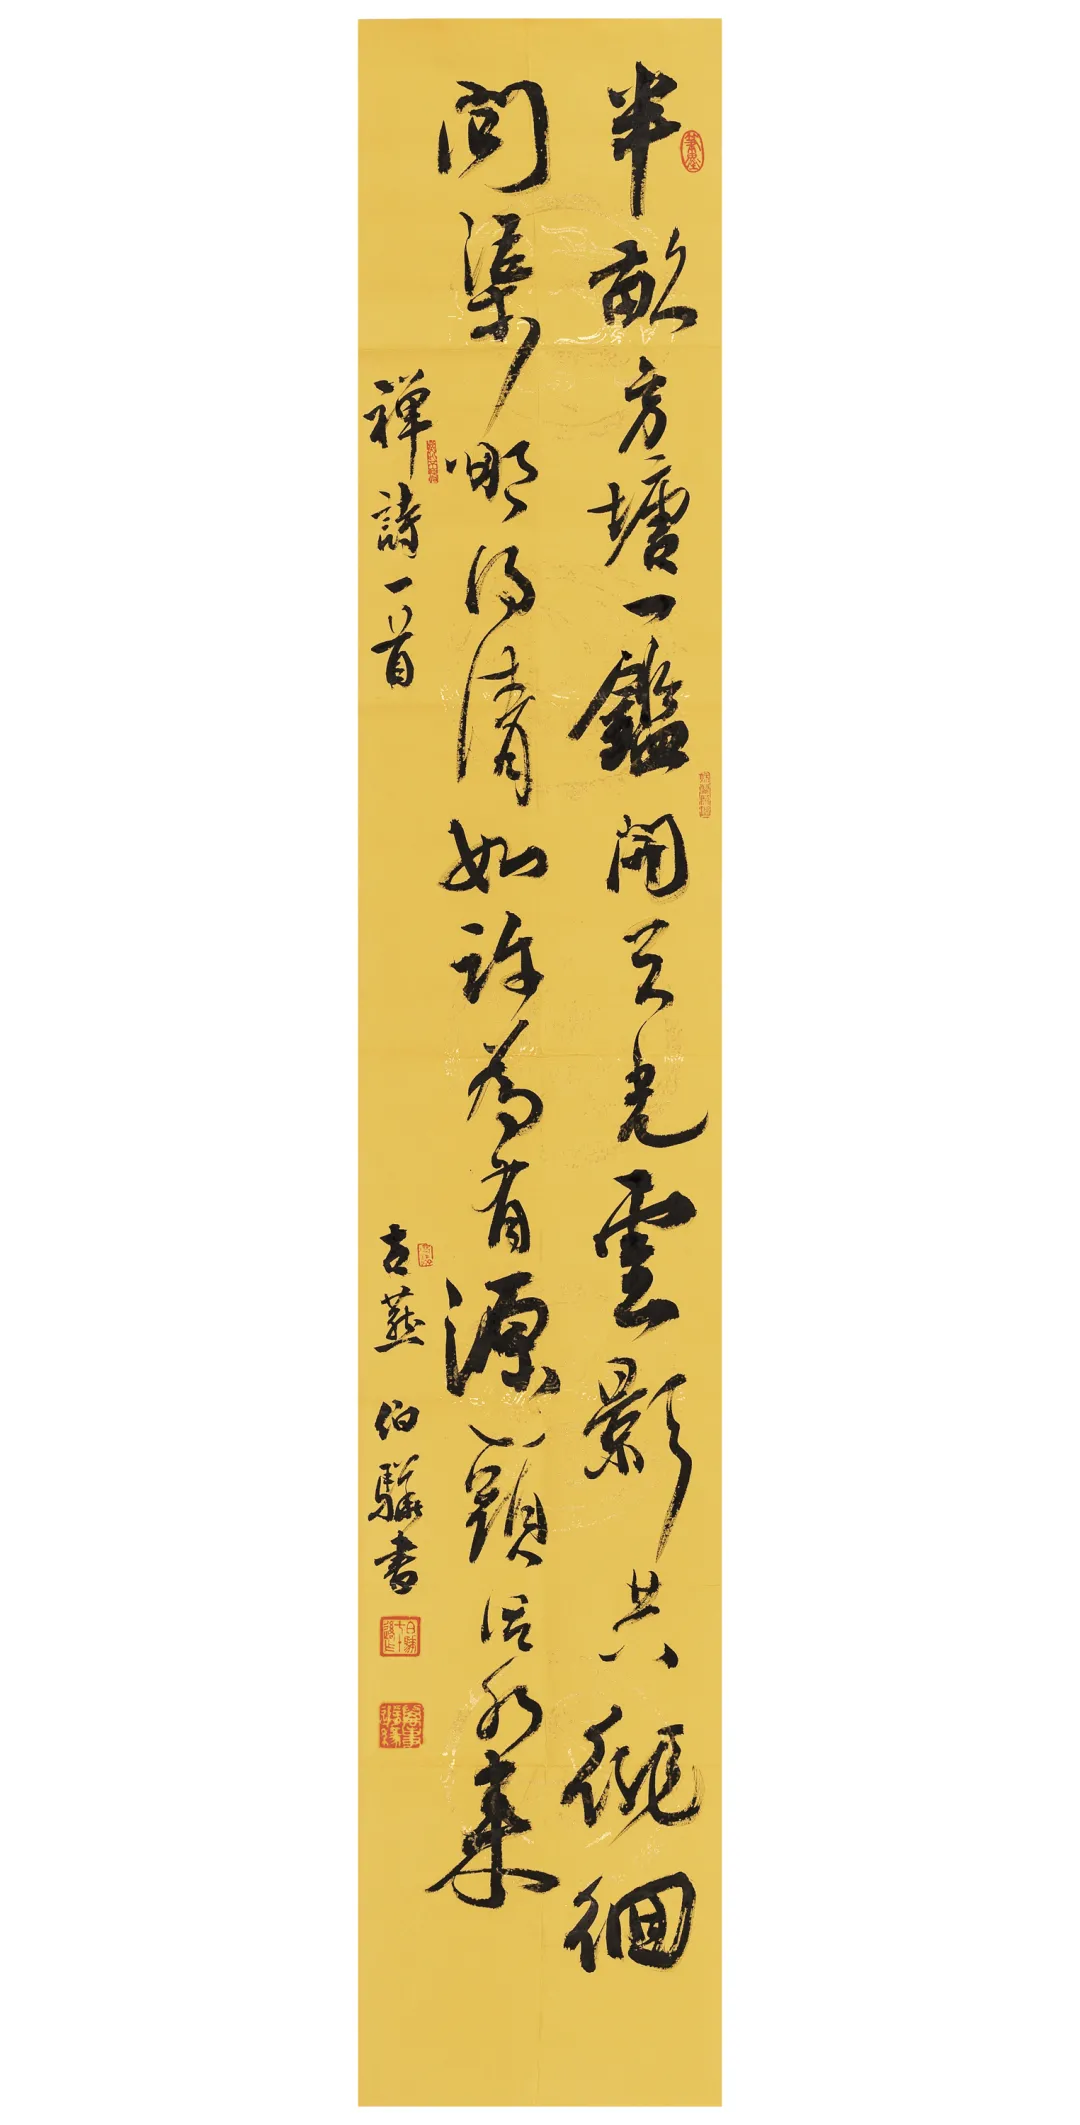 半畝方塘一鑑開天光雲影共徘徊
問渠哪得清如許為有源頭活水來
禅詩一首
古燕 伯書